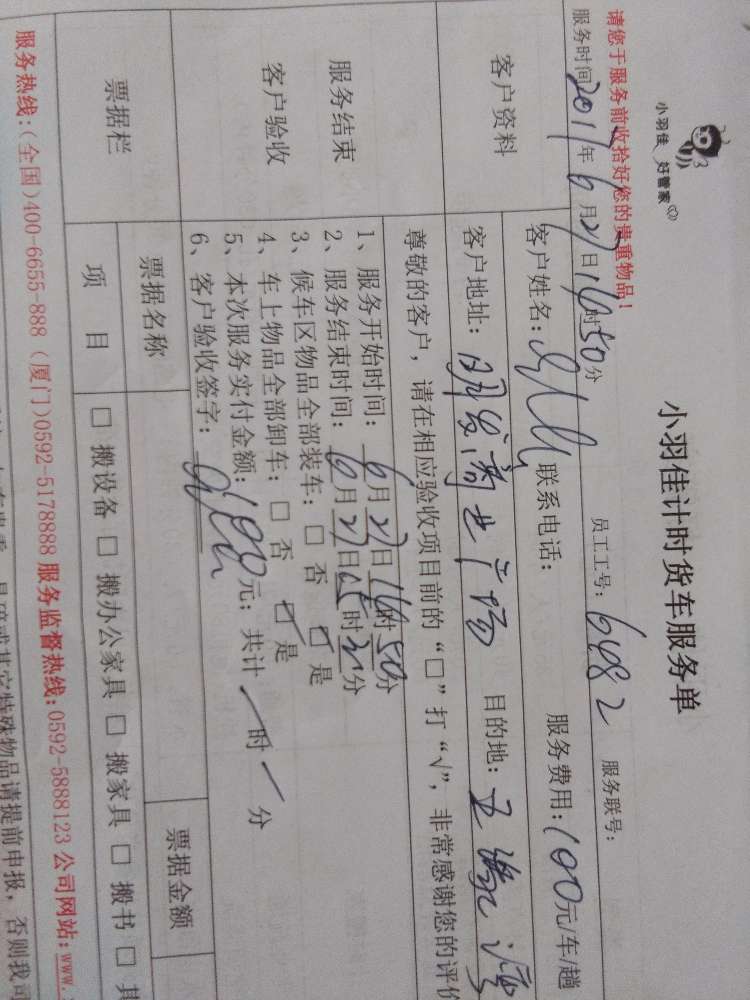 小羽佳 好管家
小羽佳计时货车服务单
请您于服务前收拾好您的贵重物品！
服务时间2011年6月27日14时50分 员工工号：6482 服务联号：
客户资料
客户姓名： 联系电话： 服务费用：100元/车/趟
客户地址：明发商业广场 目的地：
尊敬的客户，请在相应验收项目前的“□”打“√”，非常感谢您的评价
服务结束
客户验收
1、服务开始时间：6月27日14时50分
2、服务结束时间：6月27日 时 分
3、候车区物品全部装车：□ 否 ☑ 是
4、车上物品全部卸车：□ 否 ☑ 是
5、本次服务实付金额：100元；共计 时 分
6、客户验收签字：
票据栏
票据名称 票据金额
项 目 □ 搬设备 □ 搬办公家具 □ 搬家具 □ 搬书 □ 其
服务热线：(全国)400-6655-888 (厦门)0592-5178888 服务监督热线：0592-5888123 公司网站：www.
易碎或其它特殊物品请提前申报，否则我司